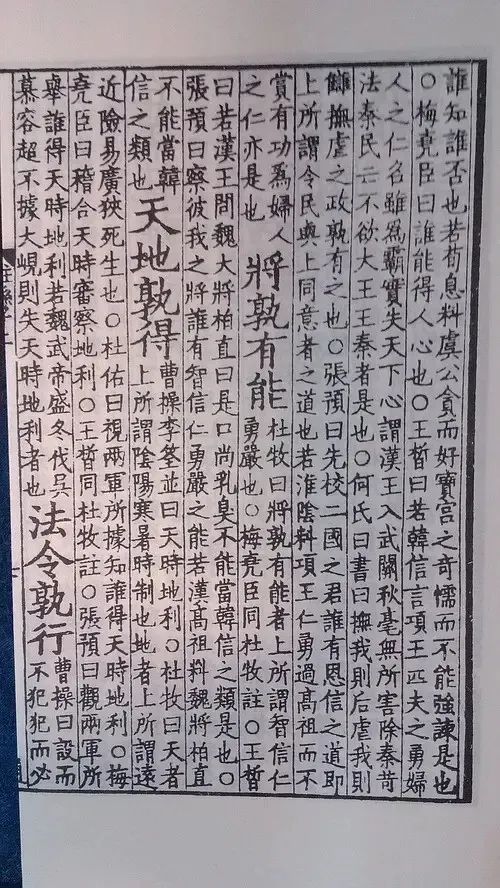 誰知誰否也若荀息料虞公貪而好寶宮之奇懦而不能強諫是也
○梅堯臣曰誰能得人心也○王晳曰若韓信言項王匹夫之勇婦
人之仁名雖為霸實失天下心謂漢王入武關秋毫無所害除秦苛
法秦民亡不欲大王王秦者是也○何氏曰書曰撫我則后虐我則
讎撫虐之政孰有之也○張預曰先校二國之君誰有恩信之道即
上所謂令民與上同意者之道也若淮陰料項王仁勇過高祖而不
賞有功為婦人
之仁亦是也
將孰有能
杜牧曰將孰有能者上所謂智信仁
勇嚴也○梅堯臣同杜牧註○王晳
曰若漢王問魏大將柏直曰是口尚乳臭不能當韓信之類是也○
張預曰察彼我之將誰有智信仁勇嚴之能若漢高祖料魏將柏直
不能當韓
信之類也
天地孰得
曹操李筌並曰天時地利○杜牧曰天者
上所謂陰陽寒暑時制也地者上所謂遠
近險易廣狹死生也○杜佑曰視兩軍所據知誰得天時地利○梅
堯臣曰稽合天時審察地利○王晳同杜牧註○張預曰觀兩軍所
舉誰得天時地利若魏武帝盛冬伐吳
慕容超不據大峴則失天時地利者也
法令孰行
曹操曰設而
不犯犯而必